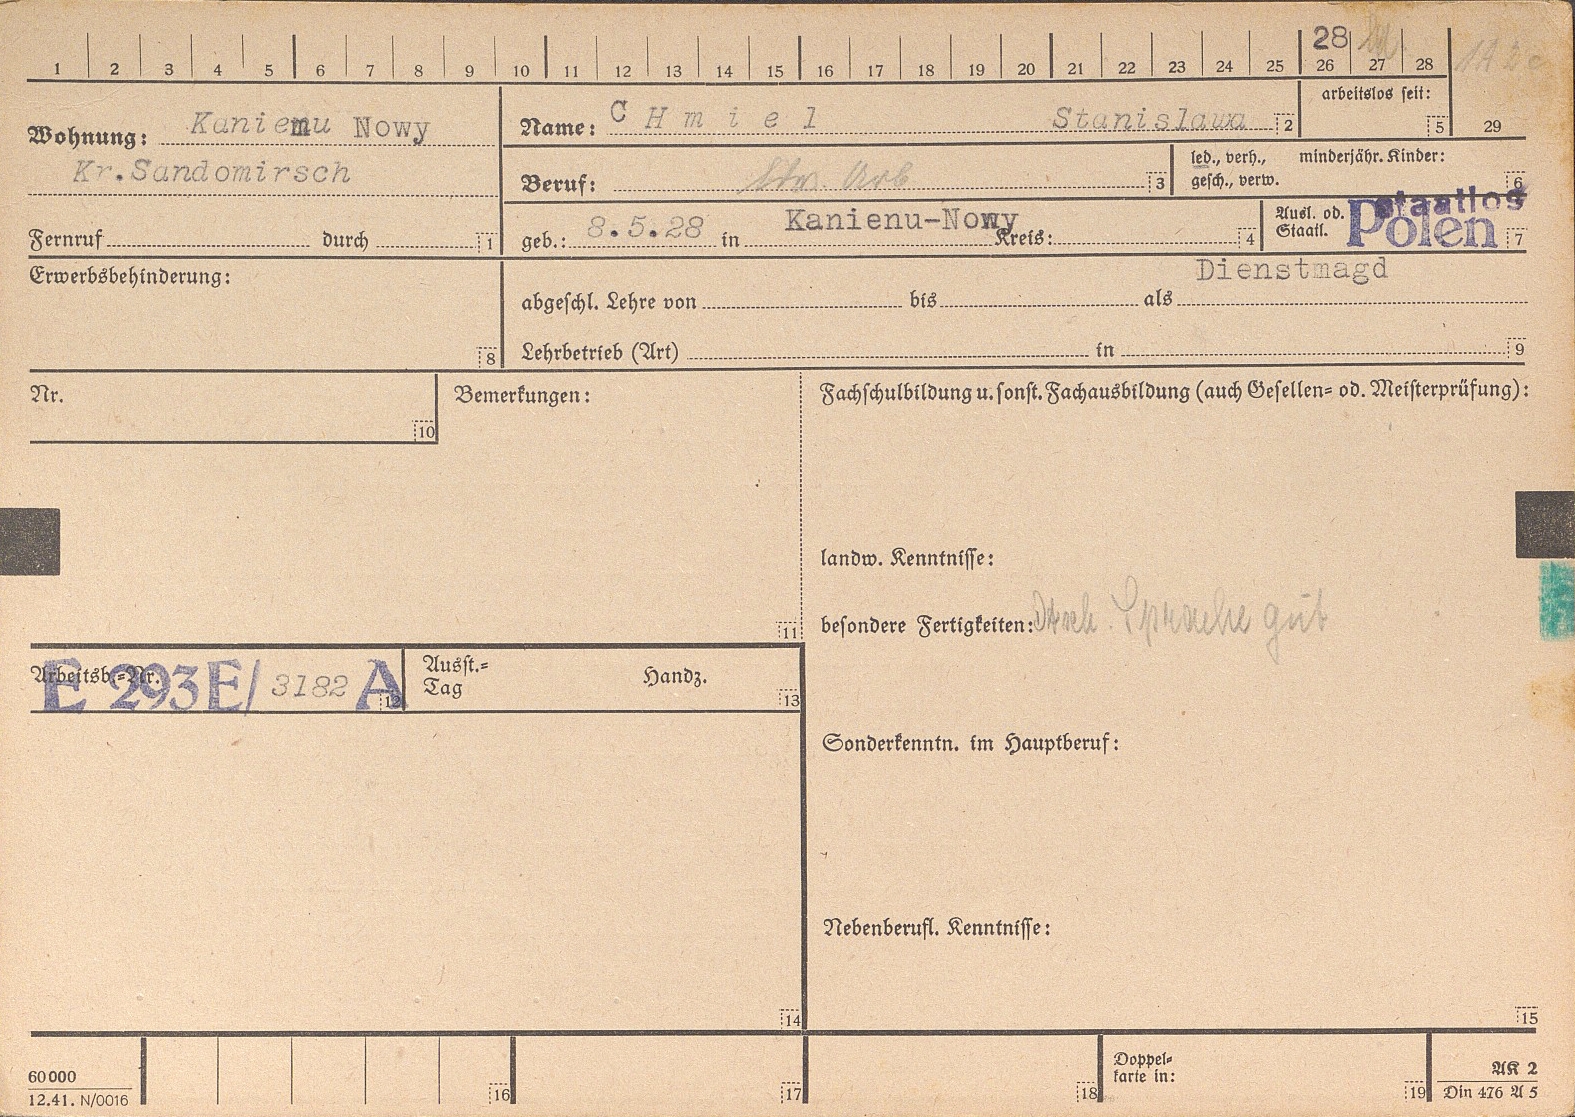 1 2 3 4 5 6 7 8 9 10 11 12 13 14 15 16 17 18 19 20 21 22 23 24 25 26 27 28
28
Wohnung: Kanienu Nowy
Kr.Sandomirsch
Fernruf durch 1
Name: C H m i e l Stanislawa 2
arbeitslos seit:
5 29
Beruf: Ldw. Arb 3
led., verh., minderjähr. Kinder:
gesch., verw. 6
geb.: 8.5.28 in Kanienu-Nowy Kreis: 4
Ausl. od. Staatl. staatlos Polen 7
Erwerbsbehinderung:
8
Dienstmagd
abgeschl. Lehre von bis als
Lehrbetrieb (Art) in 9
Nr.
10
Bemerkungen:
11
Fachschulbildung u. sonst. Fachausbildung (auch Gesellen- od. Meisterprüfung):
landw. Kenntnisse:
besondere Fertigkeiten: Dtsch. Sprache gut
Arbeitsb.-Nr. E 293E/ 3182 A 12
Ausst.-
Tag Handz. 13
Sonderkenntn. im Hauptberuf:
Nebenberufl. Kenntnisse:
14 15
60000
12.41. N/0016
16 17 18
Doppel-
karte in: 19
AK 2
Din 476 A 5